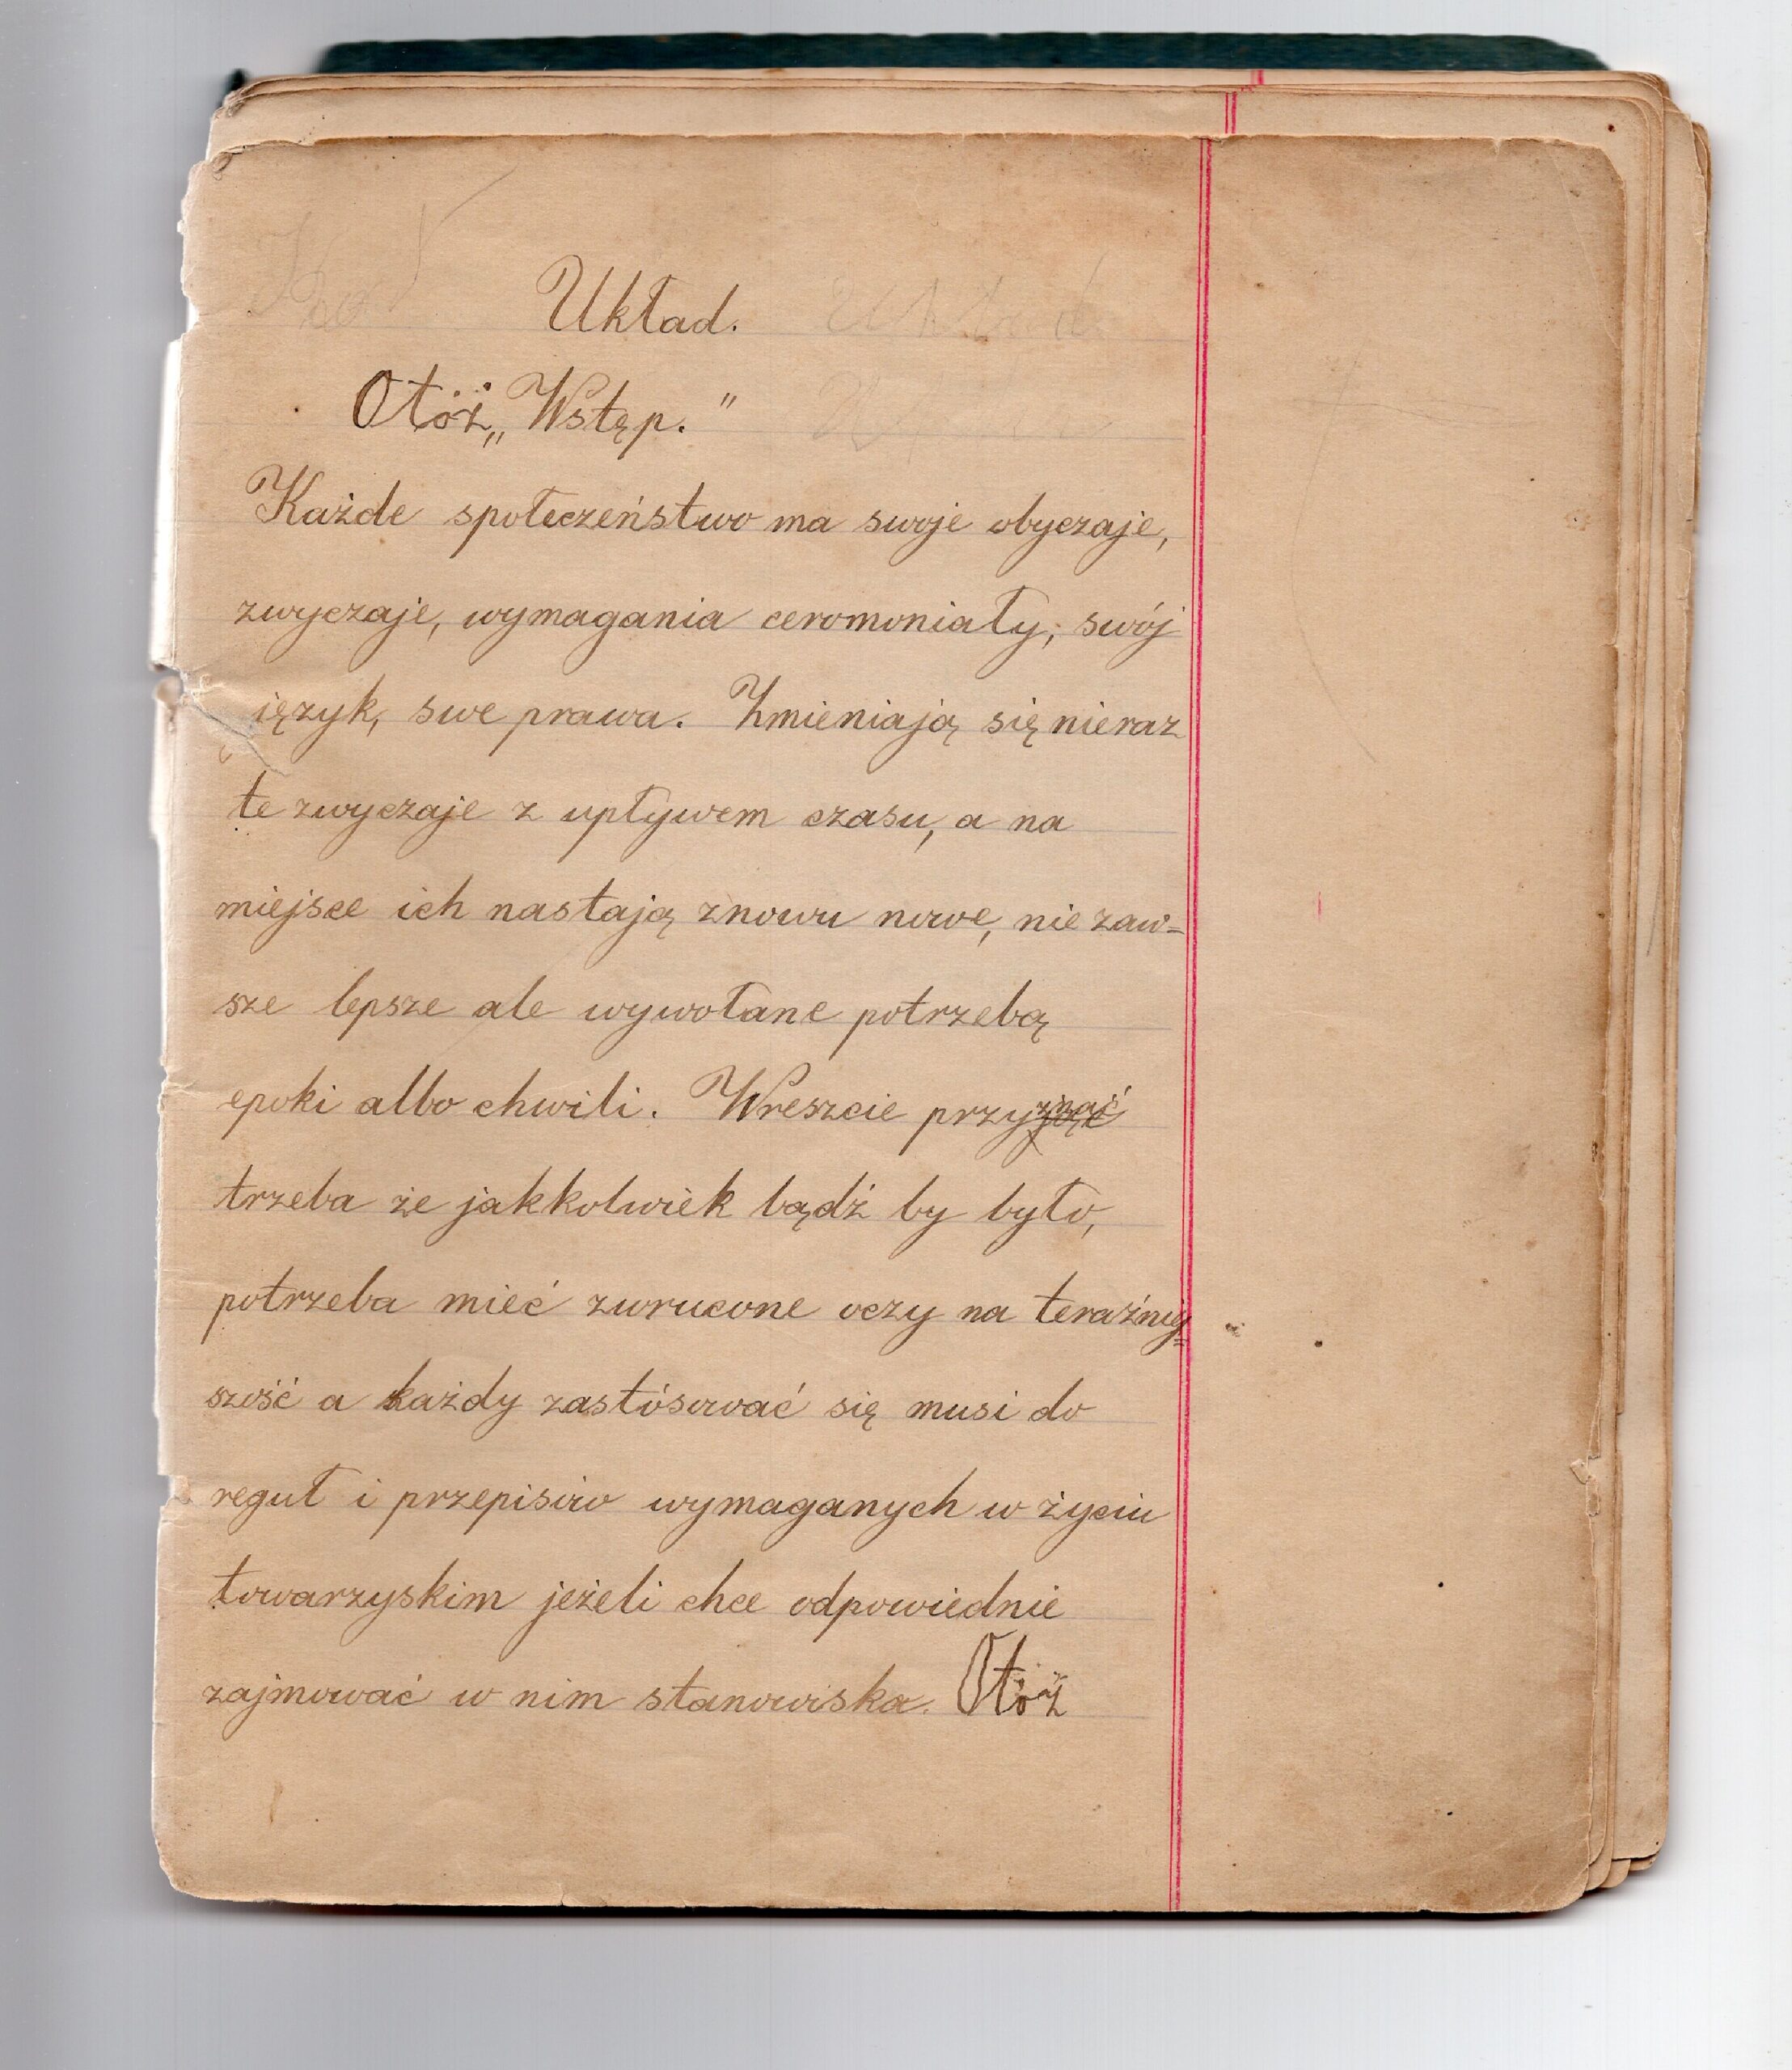 Układ.
Otóż „Wstęp."
Każde społeczeństwo ma swoje obyczaje,
zwyczaje, wymagania ceromoniały, swój
ięzyk, swe prawa. Zmieniają się nieraz
te zwyczaje z upływem czasu, a na
miejsce ich nastają znowu nowe, nie zaw=
sze lepsze ale wywołane potrzebą
epoki albo chwili. Wreszcie przyznać
trzeba że jakkolwiek bądź by było,
potrzeba mieć zwrucone oczy na teraźniej=
szość a każdy zastósować się musi do
reguł i przepisów wymaganych w życiu
towarzyskim jeżeli chce odpowiednie
zajmować w nim stanowiska. Otóż